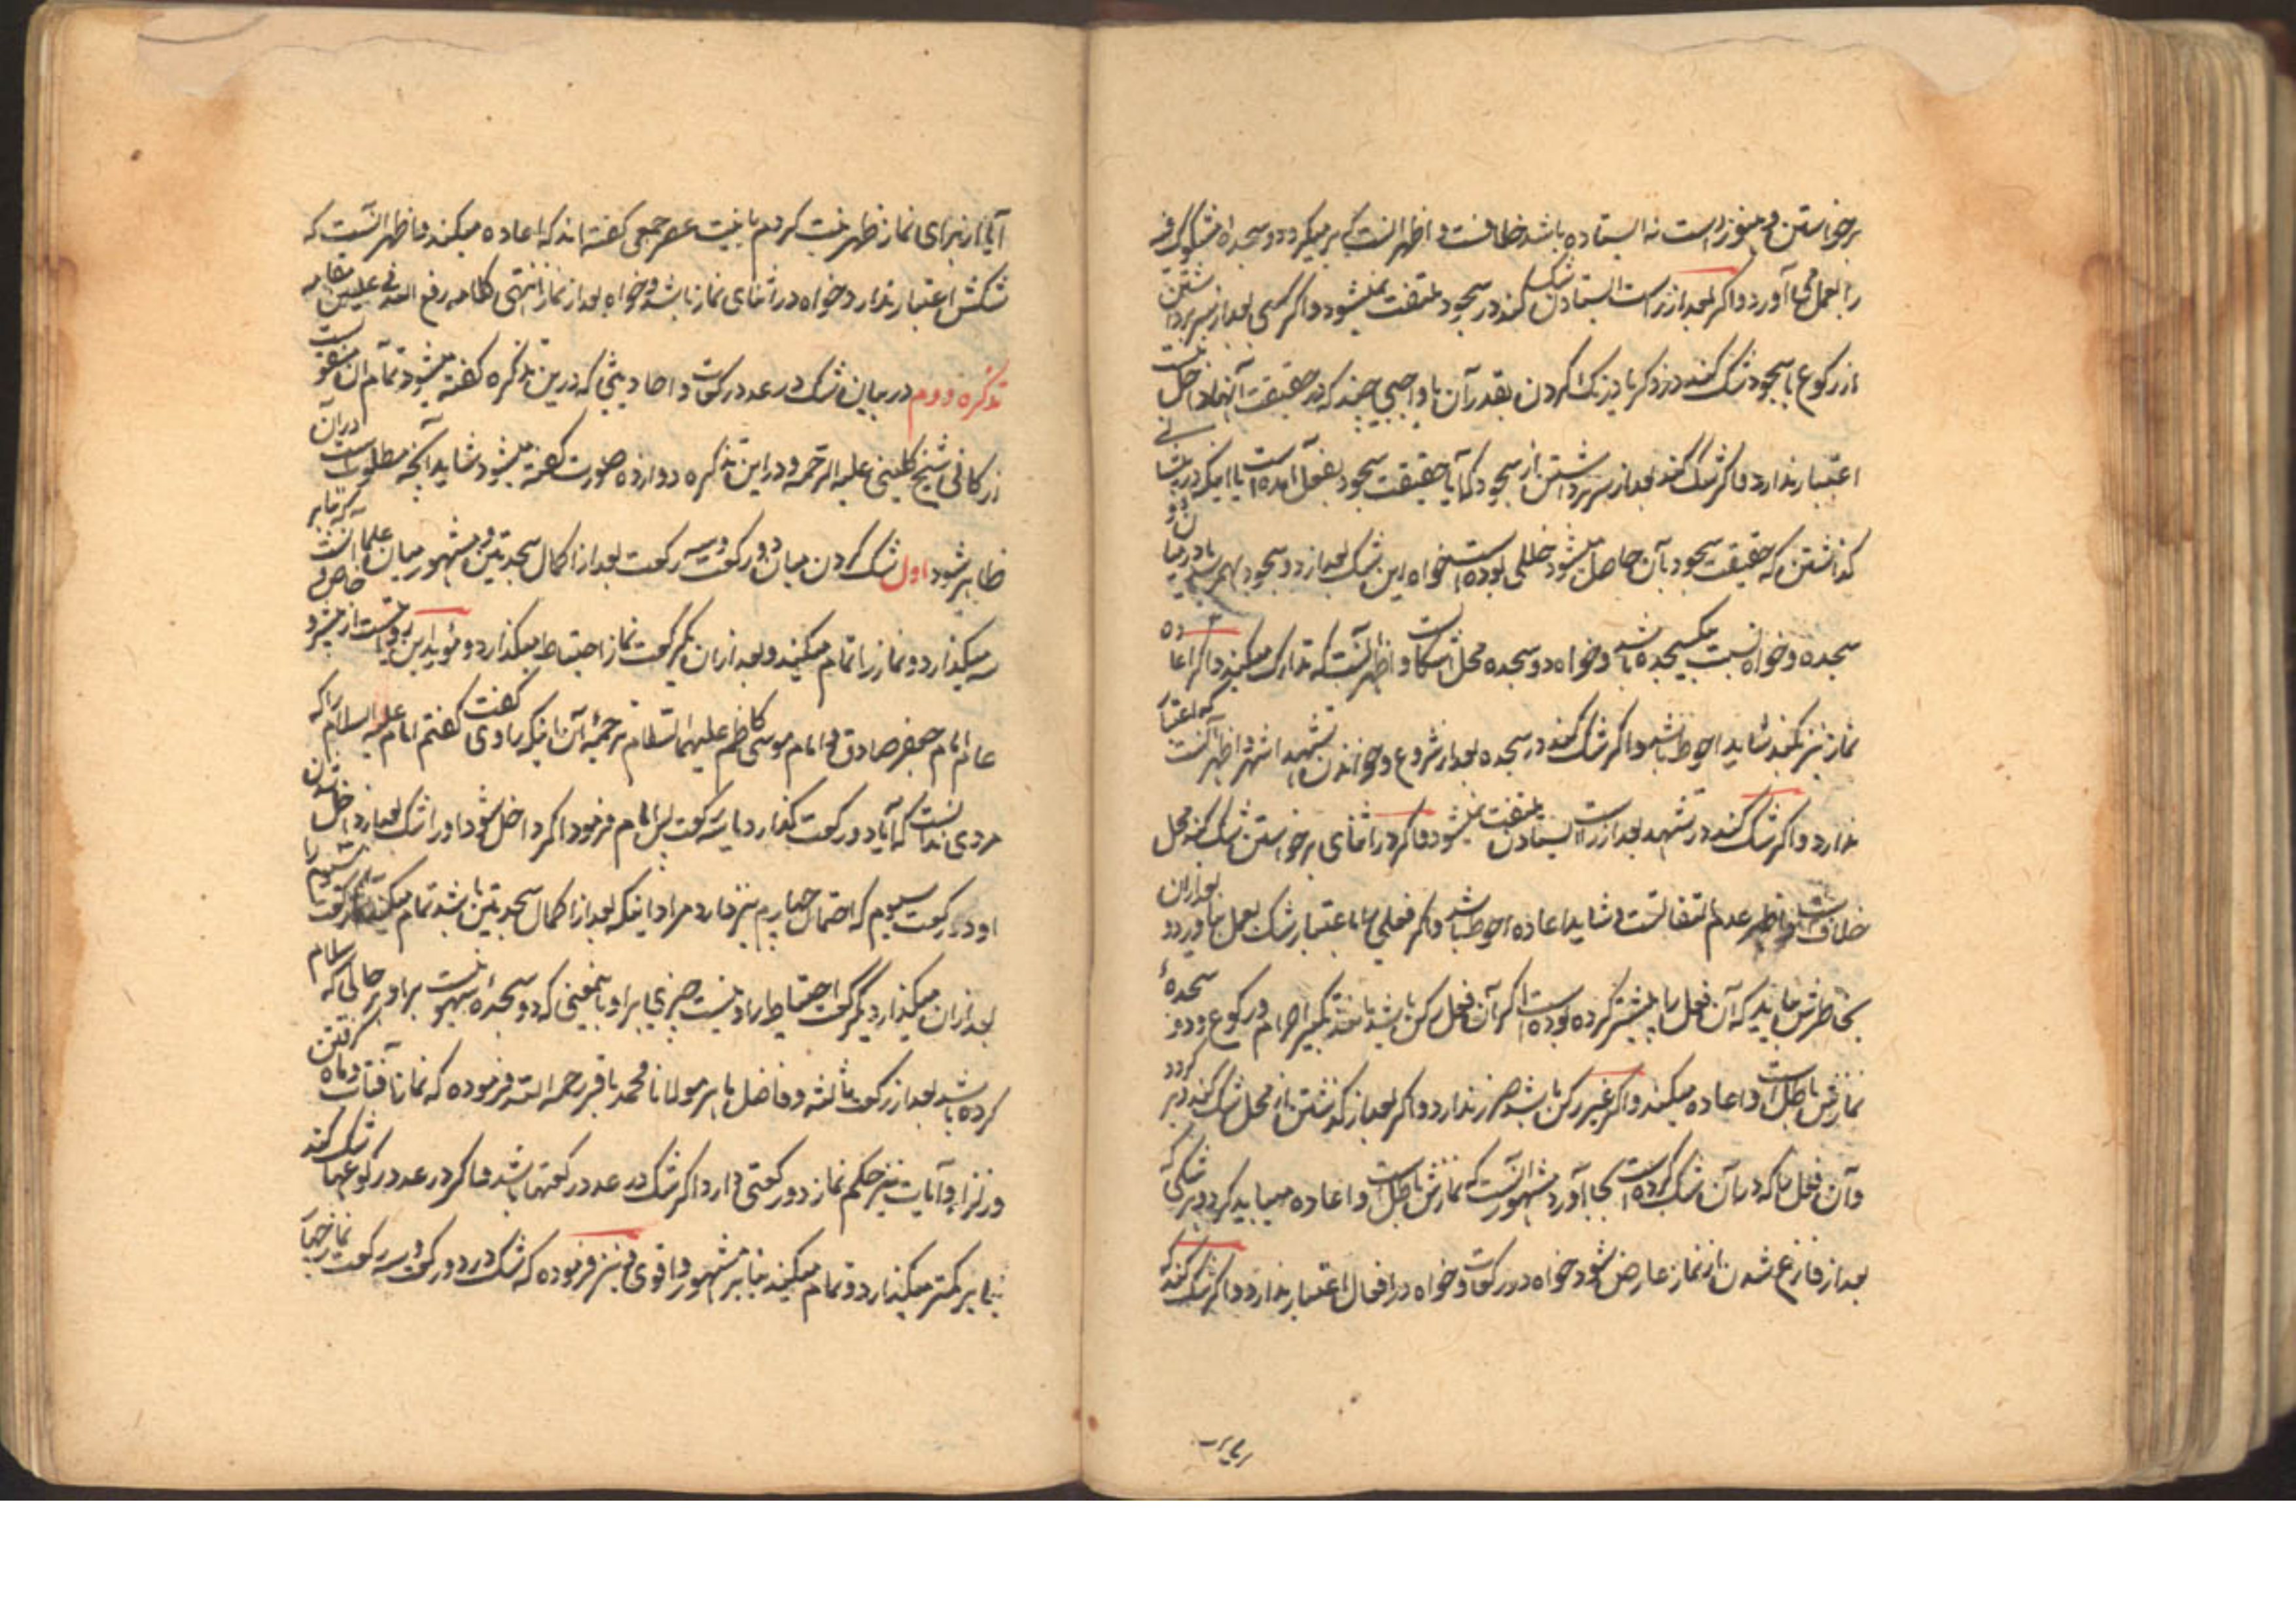 برخواستن و هنوز راست نه ایستاده باشد خلافست و اظهر آنست که بر میگردد و سجده مشکوک فیه
را بعمل می آورد و اگر بعد از راست ایستادن شک کند در سجود ملتفت نمیشود و اگر کسی بعد از سر برداشتن
از رکوع یا سجود شک کند در ذکر یا درنک کردن بقدر آن یا واجبی چند که در حقیقت آنها داخل نیست
اعتبار ندارد و اگر شک کند بعد از سر برداشتن از سجود که آیا حقیقت سجود بفعل آمده است یا اینکه در پیشانی
گذاشتن که حقیقت سجود بآن حاصل میشود خللی بوده است خواه این شک بعد از دو سجود بهم رسد یا در میان دو
سجده و خواه نسبت بیکسجده باشد و خواه دو سجده محل اشکال است و اظهر آنست که تدارک میکند و اگر اعاده
نماز نیز بکند شاید احوط باشد و اگر شک کند در سجده بعد از شروع و خواندن تشهد اشهر و اظهر آنست که اعتبار
ندارد و اگر شک کند در تشهد بعد از راست ایستادن ملتفت نمیشود و اگر در اثنای برخواستن شک کند محل
خلاف است و اظهر عدم التفاتست و شاید اعاده احوط باشد و اگر فعلی را باعتبار شک بعمل بیاورد و بعد از آن
بخاطرش بیاید که آن فعل را پیشتر کرده بوده است اگر آن فعل رکن باشد مانند تکبیر احرام و رکوع و دو سجدهٔ
نمازش باطل است و اعاده میکند و اگر غیر رکن باشد ضرر ندارد و اگر بعد از گذشتن از محل شک کند و بر گردد
و آن فعل را که در آن شک کرده است بجا آورد مشهور آنست که نمازش باطل است و اعاده میباید کرد و هر شکی که
بعد از فارغ شدن از نماز عارض شود خواه در رکعات و خواه در افعال اعتبار ندارد و اگر شک کند که
آیا از برای نماز ظهر نیت کردم یا نیت عصر جمعی گفته اند که اعاده میکند و اظهر آنست که
شکش اعتبار ندارد خواه در اثنای نماز باشد و خواه بعد از نماز انتهی کلامه رفع الله فی علیین مقامه
تذکره دوم در بیان شک در عدد رکعات و احادیثی که درین تذکره گفته میشود تمام آن منقولست
از کافی شیخ کلینی علیه الرحمه و در این تذکره دوازده صورت گفته میشود شاید آنچه مطلوبست در آن
ظاهر شود اول شک کردن میان دو رکعت و سه رکعت بعد از اکمال سجدتین و مشهور میان علما آنست که بنا بر
سه میگذارد و نماز را تمام میکند و بعد از آن یکرکعت نماز احتیاط میگذارد و مؤید این روایتست از
عالم امام جعفر صادق و امام موسی کاظم علیهما السلام ترجمه آن اینکه راوی گفت گفتم امام علیه السلام را که
مردی ندانست که آیا دو رکعت گذارد یا سه رکعت پس امام فرمود اگر داخل شود او را شک بعد از داخل شدن
او در رکعت سیوم که احتمال چهارم نیز دارد مراد اینکه بعد از اکمال سجدتین باشد تمام میکند رکعت سیوم را
بعد از آن میگذارد یکرکعت احتیاط را و نیست چیزی بر او باینمعنی که دو سجدهٔ سهو نیست بر او در حالی که سلام
کرده باشد بعد از رکعت ثالثه و فاضل ماهر مولانا محمد باقر رحمه الله فرموده که نماز آفتاب و ماه گرفتن
و زلزله و آیات نیز حکم نماز دو رکعتی دارد اگر شک در عدد رکعتها باشد و اگر در عدد رکوعها شک کند
بنا بر کمتر میگذارد و تمام میکند بنا بر مشهور و اقوی و نیز فرموده که شک در دو رکعت و سه رکعت نماز چهار